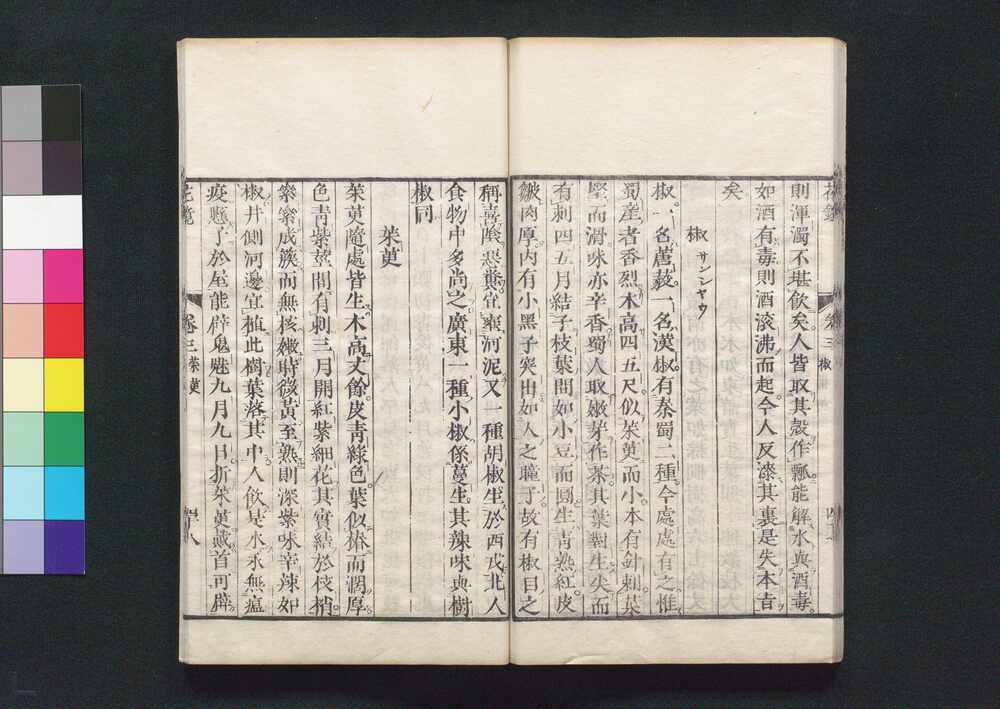 則渾濁不堪飲矣人皆取其殼作瓢能解水與酒毒
如酒有毒則酒滾沸而起今人反漆其裏是失本旨
矣
椒 サンシヤウ
椒一名蘑藙一名漢椒有秦蜀二種今處處有之惟
蜀產者香烈木高四五尺似茱萸而小本有針刺葉
堅而滑味亦辛香蜀人取嫩芽作茶其葉對生尖而
有刺四五月結子枝葉間如小豆而圓生青熟紅皮
皺肉厚內有小黑子突出如人之瞳子故有椒目之
稱喜陰惡糞宜壅河泥又一種胡椒生於西戎北人
食物中多尚之廣東一種小椒係蔓生其辣味與樹
椒同
茱萸
茱萸隨處皆生木高丈餘皮青綠色葉似椿而濶厚
色青紫莖間有刺三月開紅紫細花其實結於枝梢
纍纍成簇而無核嫩時微黃至熟則深紫味辛辣如
椒井側河邊宜植此樹葉落其中人飲是水永無瘟
疫懸子於屋能辟鬼魅九月九日折茱萸戴首可辟
花鏡 卷三 椒
花鏡 卷三 茱萸 四十八